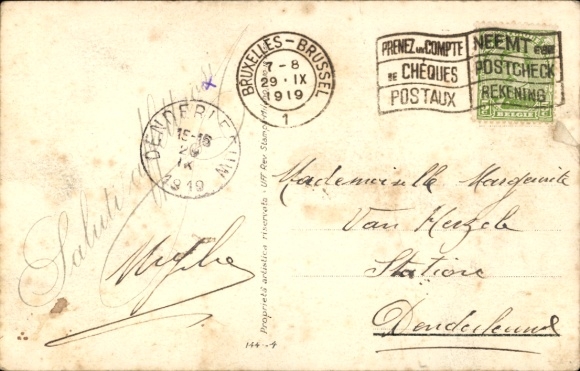 BRUXELLES-BRUSSEL
7-8
29·IX
1919
1
PRENEZ UN COMPTE
DE CHÈQUES
POSTAUX
NEEMT EEN
POSTCHECK
REKENING
BELGIË
DENDERLEEUW
15-16
29
IX
1919
Saluti
Mademoiselle Marguerite
Van Herzele
Station
Denderleeuw
Proprietà artistica riservata - Uff. Rev. Stampa
144-4